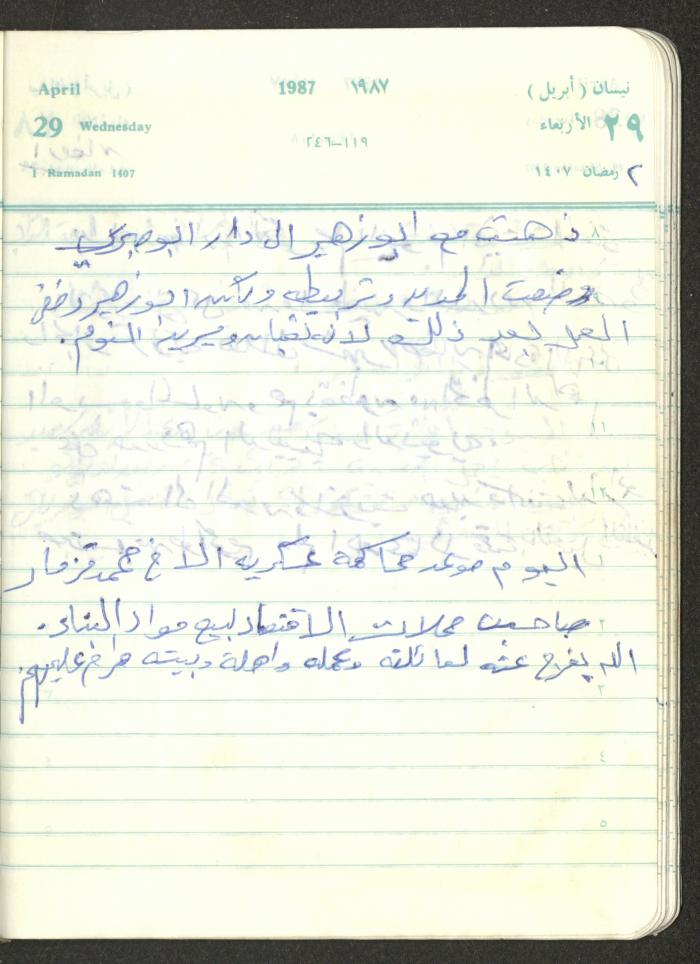 April 1987 ١٩٨٧ نيسان ( أبريل )
29 Wednesday ١١٩–٢٤٦ الأربعاء ٢٩
1 Ramadan 1407 ٢ رمضان ١٤٠٧
٨
ذهبت مع ابو زهير الى دار ابو صبري
وضعت الحديد وتربيطه و ابو زهير
العمل بعد ذلك لانه تعبان ويريد النوم.
١٠
١١
١٢
١
اليوم موعد محاكمة عسكريه الاخ محمد قزمار
٢
صاحب محلات الاقتصاد لبيع مواد البناء.
الله يفرج عنه لعائلته وعمله واهله وبيته
٣
٤
٥